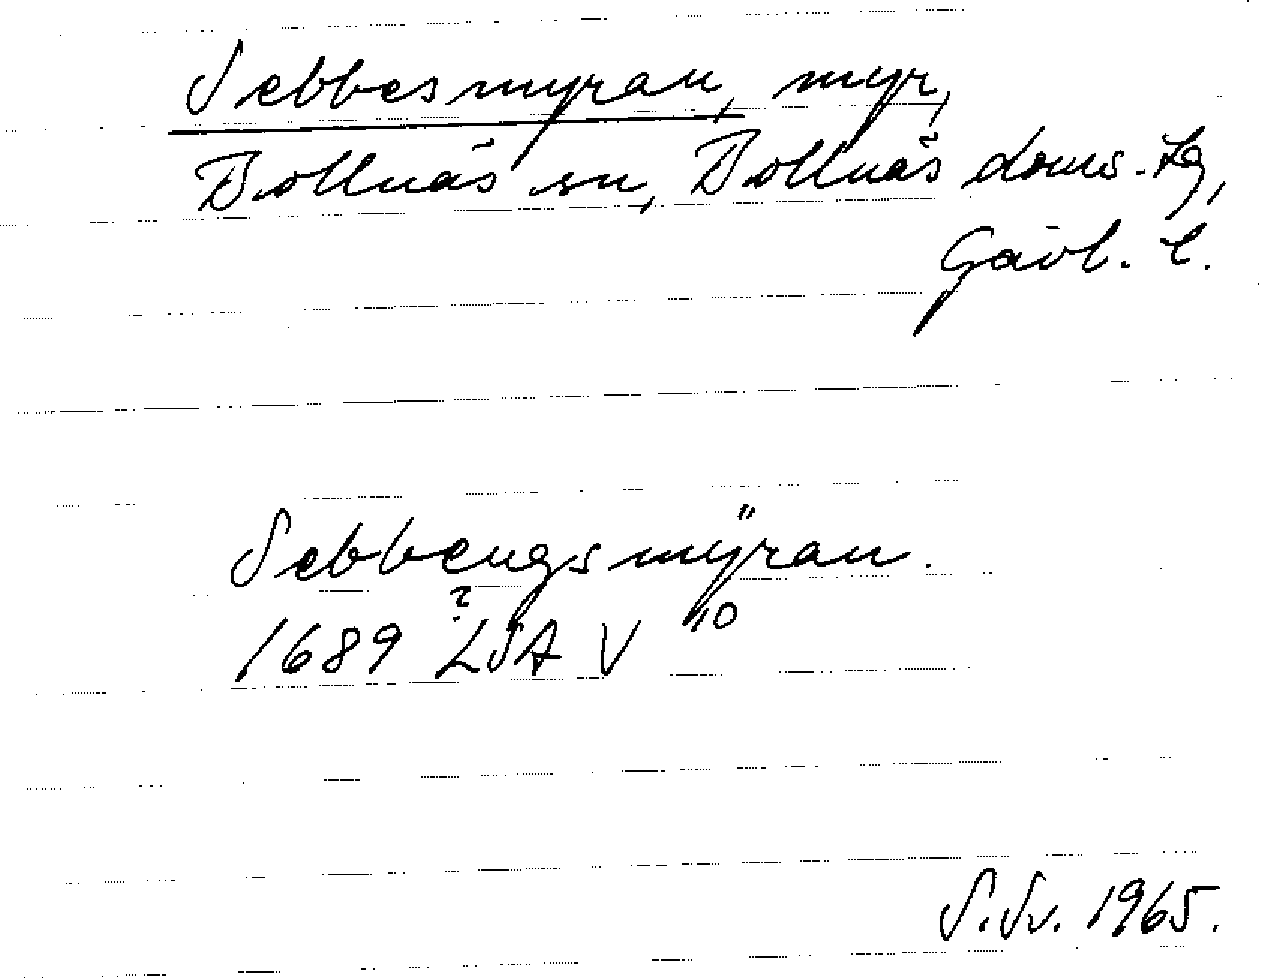 Sebbesmyran, myr,
Bollnäs sn, Bollnäs doms.lag,
Gävl. l.
Sebbengsmÿran.
?
1689 LSA V 10
S.Sv. 1965.